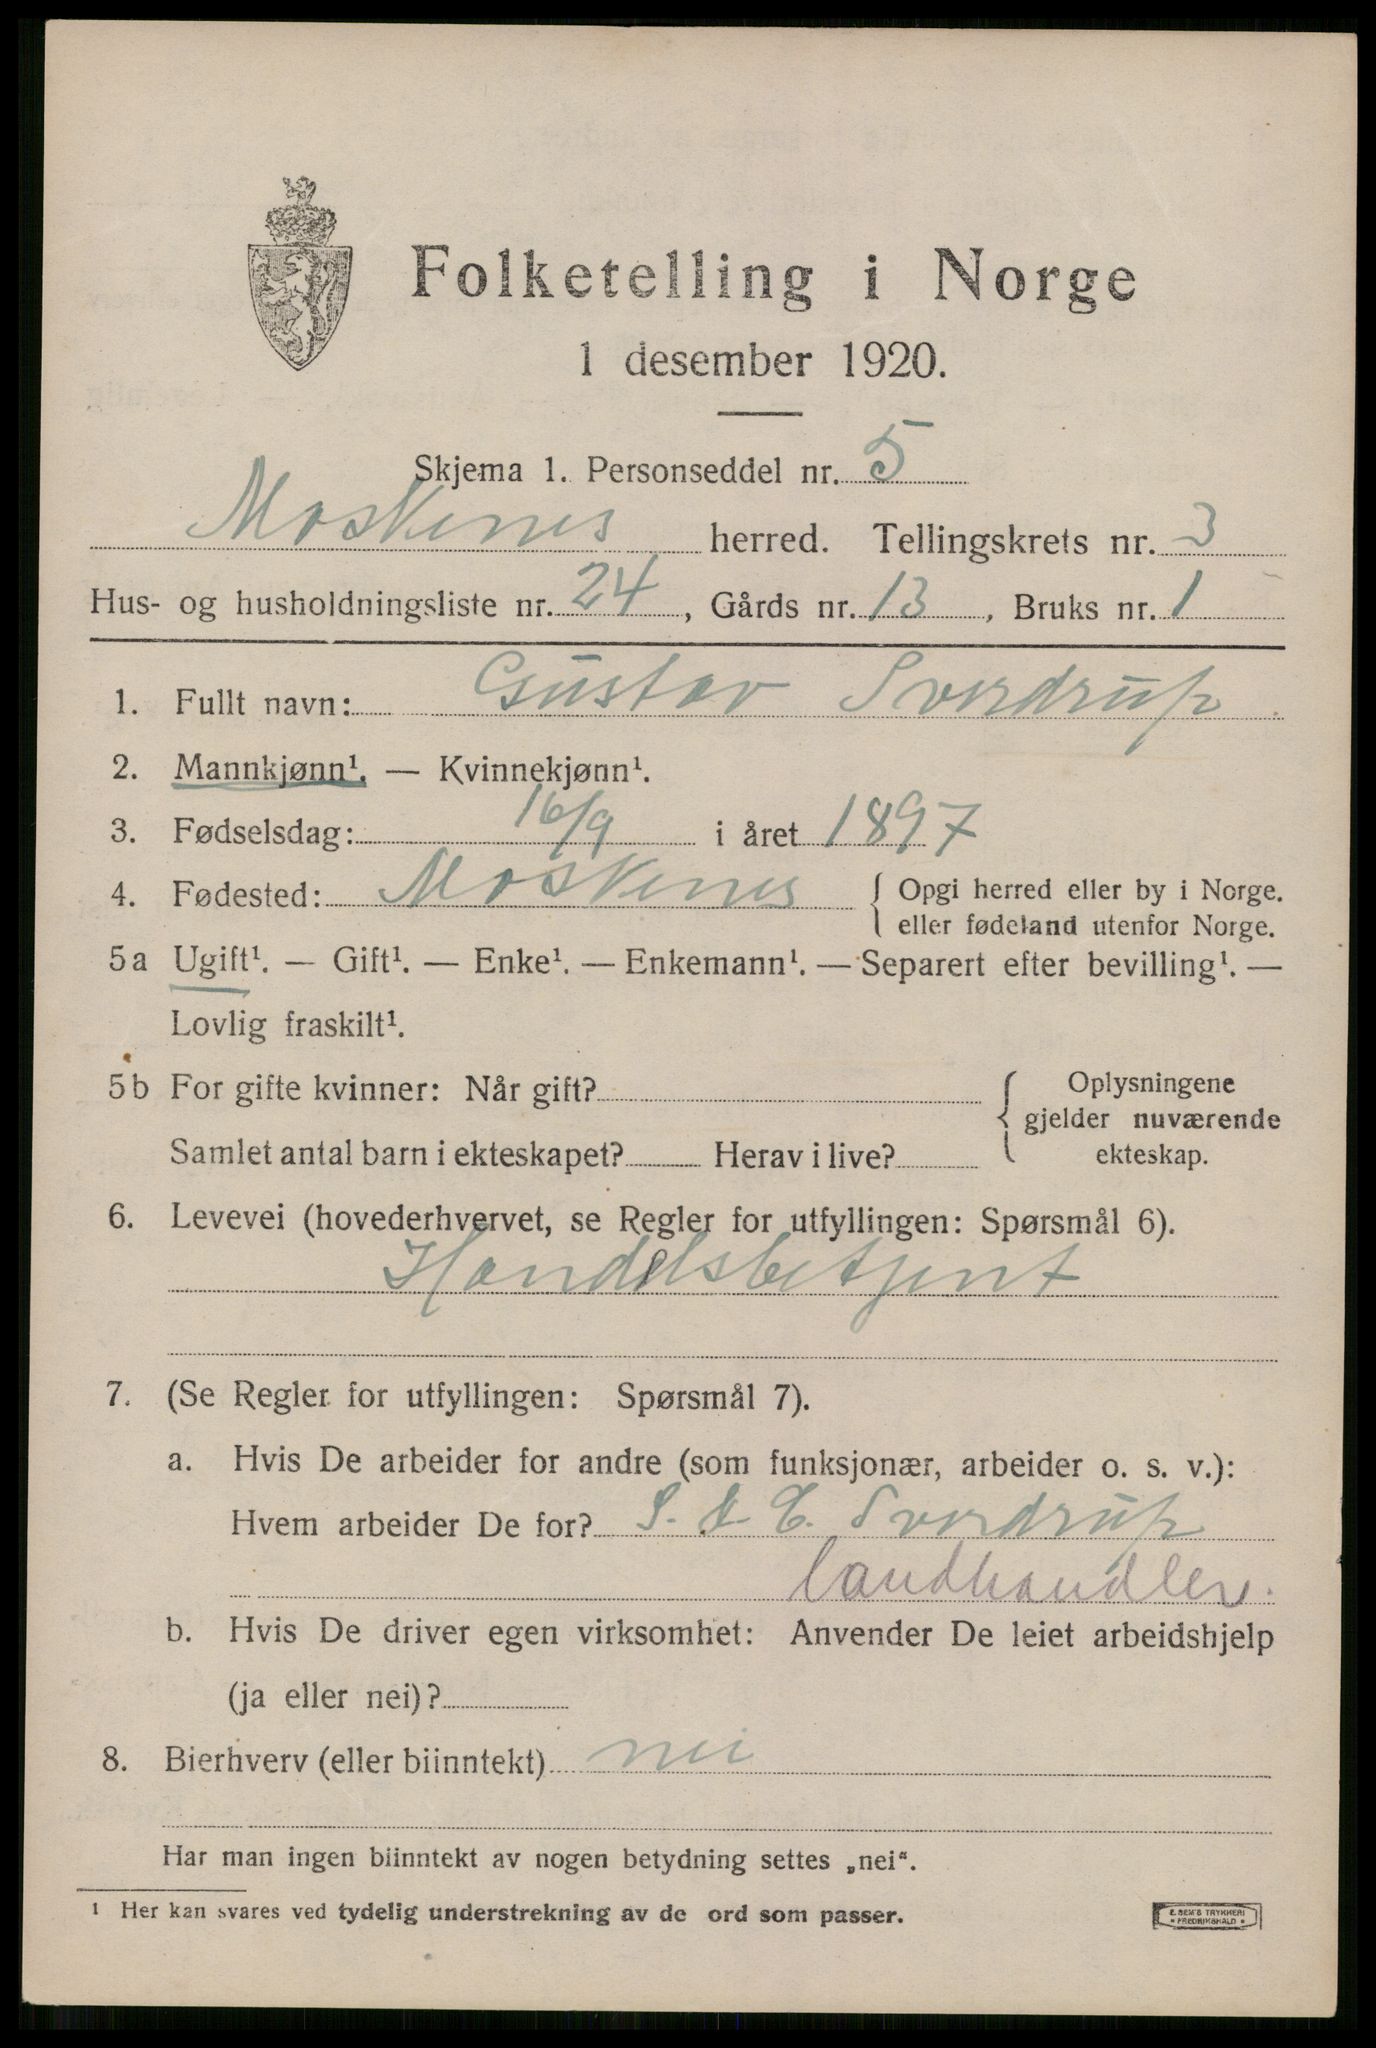 Folketelling i Norge
1 desember 1920.
Skjema 1. Personseddel nr. 5
Moskenes herred. Tellingskrets nr. 3
Hus- og husholdningsliste nr. 24, Gårds nr. 13, Bruks nr. 1
1. Fullt navn: Gustav Sverdrup
2. Mannkjønn¹. — Kvinnekjønn¹.
3. Fødselsdag: 16/9 i året 1897
4. Fødested: Moskenes { Opgi herred eller by i Norge.
eller fødeland utenfor Norge.
5a Ugift¹. — Gift¹. — Enke¹. — Enkemann¹. — Separert efter bevilling¹. —
Lovlig fraskilt¹.
5b For gifte kvinner: Når gift? { Oplysningene
gjelder nuværende
Samlet antal barn i ekteskapet? Herav i live? ekteskap.
6. Levevei (hovederhvervet, se Regler for utfyllingen: Spørsmål 6).
Handelsbetjent
7. (Se Regler for utfyllingen: Spørsmål 7).
a. Hvis De arbeider for andre (som funksjonær, arbeider o. s. v.):
Hvem arbeider De for? S. & C. Sverdrup
landhandlere.
b. Hvis De driver egen virksomhet: Anvender De leiet arbeidshjelp
(ja eller nei)?
8. Bierhverv (eller biinntekt) nei
Har man ingen biinntekt av nogen betydning settes „nei“.
¹ Her kan svares ved tydelig understrekning av de ord som passer.
E. SEM'S TRYKKERI
* FREDRIKSHALD *